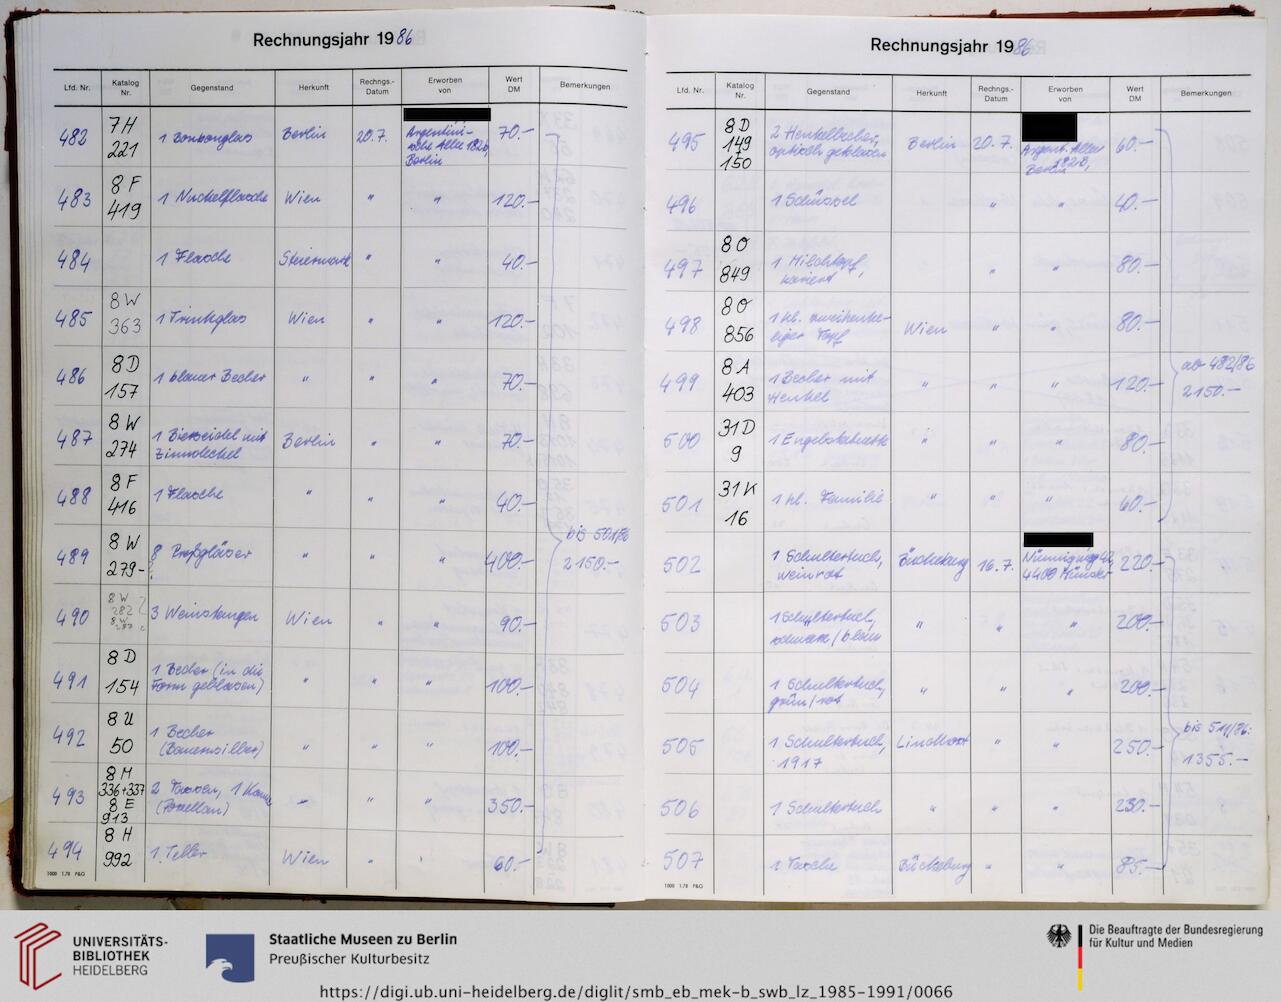 Rechnungsjahr 1986
Lfd. Nr. Katalog Nr. Gegenstand Herkunft Rechngs.-Datum Erworben von Wert DM Bemerkungen
482 7H 221 1 Bonbonglas Berlin 20.7. Argentini-sche Allee 182b, Berlin 70.-
483 8F 419 1 Nuckelflasche Wien " " 120.-
484 1 Flasche Steiermark " " 40.-
485 8W 363 1 Trinkglas Wien " " 120.-
486 8D 157 1 blauer Becher " " " 70.-
487 8W 274 1 Bierseidel mit Zinndeckel Berlin " " 70.-
488 8F 416 1 Flasche " " " 40.-
bis 501/86
489 8W 279- 8 Preßgläser " " " 400.- 2150.-
490 8W 282 8W 3 Weinstangen Wien " " 90.-
491 8D 154 1 Becher (in die Form geblasen) " " " 100.-
492 8U 50 1 Becher (Bauernsilber) " " " 100.-
493 8M 336+337 8E 913 2 Tassen, 1 Kanne (Porzellan) " " " 350.-
494 8H 992 1 Teller Wien " " 60.-
1000 1.78 P&G
Rechnungsjahr 1986
Lfd. Nr. Katalog Nr. Gegenstand Herkunft Rechngs.-Datum Erworben von Wert DM Bemerkungen
495 8D 149 150 2 Henkelbecher, optisch geblasen Berlin 20.7. Argent. Allee 182b, Berlin 60.-
496 1 Schüssel " " 40.-
497 8O 849 1 Milchtopf, " " 80.-
498 8O 856 1 kl. zweihenke-liger Topf Wien " " 80.-
ab 482/86
499 8A 403 1 Becher mit Henkel " " " 120.- 2150.-
500 31D 9 " " " 80.-
501 31K 16 1 kl. Familie " " " 60.-
502 1 Schultertuch, weinrot Bückeburg 16.7. 4400 Münster 220.-
503 1 Schultertuch, schwarz/blau " " " 200.-
504 1 Schultertuch, grün/rot " " " 200.-
bis 511/86:
505 1 Schultertuch, 1917 Lindhorst " " 250.- 1355.-
506 1 Schultertuch " " " 230.-
507 1 Tasche Bückeburg " " 85.-
1000 1.78 P&G
UNIVERSITÄTS-
BIBLIOTHEK
HEIDELBERG
Staatliche Museen zu Berlin
Preußischer Kulturbesitz
Die Beauftragte der Bundesregierung
für Kultur und Medien
https://digi.ub.uni-heidelberg.de/diglit/smb_eb_mek-b_swb_lz_1985-1991/0066